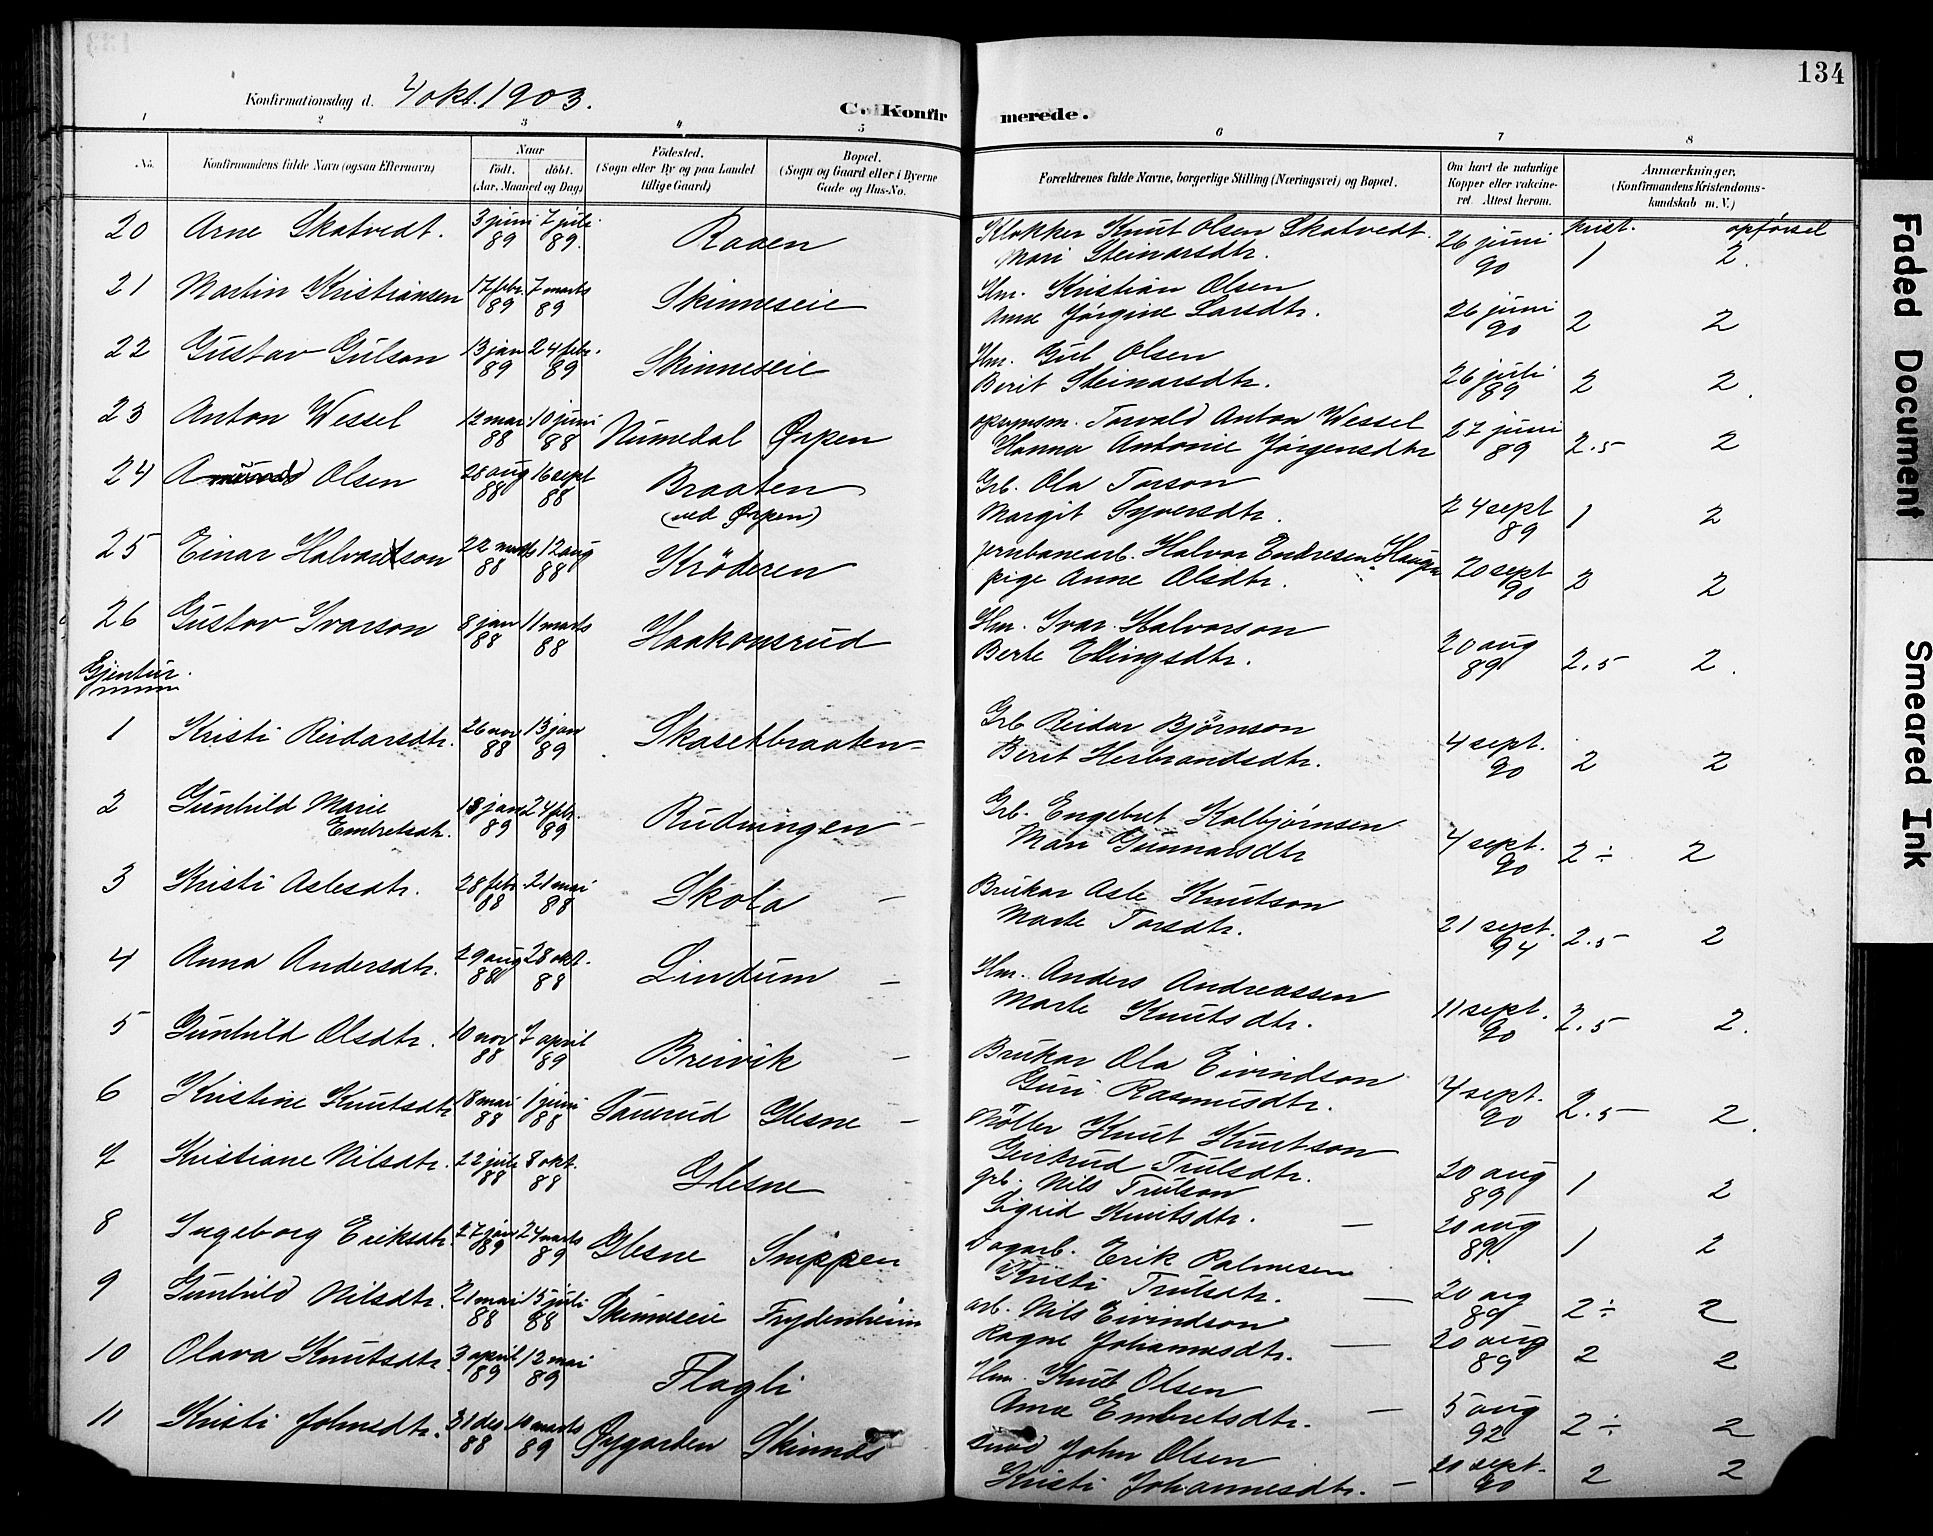 134
Konfirmationsdag d. 4 okt. 1903.
C. Konfirmerede.
1 2 3 4 5 6 7 8
No.
Konfirmandens fulde Navn (ogsaa Efternavn)
Naar
födt. döbt.
(Aar, Maaned og Dag)
Födested.
(Sogn eller By og paa Landet
tillige Gaard)
Bopæl.
(Sogn og Gaard eller i Byerne
Gade og Hus-No.
Forældrenes fulde Navne, borgerlige Stilling (Næringsvei) og Bopæl.
Om havt de naturlige
Kopper eller vakcine-
ret. Attest herom.
Anmærkninger,
(Konfirmandens Kristendoms-
kundskab m. V.)
krist. opförsel
20 Arne Skatvedt. 3 juni 89 7 juli 89. Raaen
Klokker Knut Olsen Skatvedt.
Mari Steinarsdtr. 26 juni 90 1 2.
21 Martin Kristiansen 17 febr. 89 7 marts 89 Skinneseie
Hm. Kristian Olsen
Anne Jørgine Larsdtr. 26 juni 90 2 2
22 Gustav Gulson 13 jan 89 24 febr. 89 Skinneseie
Hm. Gul Olsen
Berit Steinarsdtr. 26 juli 89 2 2.
23 Anton Wessel 12 mar 88 10 juni 88 Numedal Ørpen
opsynsm. Torvald Anton Wessel
Hanna Antonie Jörgensdtr 27 juni 89 2.5 2
24 Olsen 28 aug 88 16 sept 88 Braaten
(ved Ørpen)
Grb. Ola Torson
Margit Syversdtr. 24 sept 89 1 2
25 Einar Halvardson 22 marts 88 12 aug 88 Kröderen
jernbanearb. Halvor Endresen Haugen
pige Anne Olsdtr. 20 sept 90 2 2
26 Gustav Ivarson 8 jan 88 11 marts 88 Haakonsrud
Hm. Ivar Halvorson
Berte Ellingsdtr. 20 aug 89 2.5 2.
Gjentur.
1 Kristi Reidarsdtr. 26 nov 88 13 jan 89 Skasetbraaten -
Grb Reidar Björnson
Berit Herbrandsdtr. 4 sept. 90 2 2
2 Gunhild Marie
Embretsdtr. 18 jan 89 24 febr. 89 Rudningen -
Grb. Engebret Kolbjörnsen
Mari Gunnarsdtr 4 sept. 90 2 ÷ 2
3 Kristi Aslesdtr. 28 febr. 88 21 mai 88 Skola -
Brukar Asle Knutson
Marte Torsdtr. 21 sept. 94 2.5 2
4 Anna Andersdtr. 29 aug 88 28 okt. 88 Lindum -
Hm. Anders Andreassen
Marte Knutsdtr. 11 sept. 90 2.5 2.
5 Gunhild Olsdtr. 10 nov 88 7 april 89 Breivik -
Brukar Ola Eivindson
Guri Rasmusdtr. 4 sept. 90 2.5 2.
6 Kristine Knutsdtr 18 mai 88 1 juni 88 Glesne -
Möller Knut Knutson
Gertrud Trulsdtr. 20 aug 89 1 2
7 Kristiane Nilsdtr. 22 juli 88 8 okt. 88 Glesne
grb. Nils Trulson
Sigrid Knutsdtr. - 20 aug 89. 1 2
8 Ingeborg Eriksdtr. 27 jan 89 24 marts 89 Glesne Snippen
Dagarb. Erik Palmesen
Kristi Trulsdtr. - 20 aug 89 2 ÷ 2
9 Gunhild Nilsdtr. 21 mai 88 15 juli 88 Skinneseie Frydenheim
arb. Nils Eivindson
Ragne Johannesdtr. - 20 aug 89 2 2
10 Olava Knutsdtr 3 april 89 12 mai 89 Flagli
Hm. Knut Olsen
Anne Embretsdtr. - 5 aug 92 2 ÷ 2
11 Kristi Johnsdtr. 31 des 88 10 marts 89 Øygarden Skinnes
John Olsen
Kristi Johannesdtr. - 20 sept. 90 2 2
Faded Document
Smeared Ink